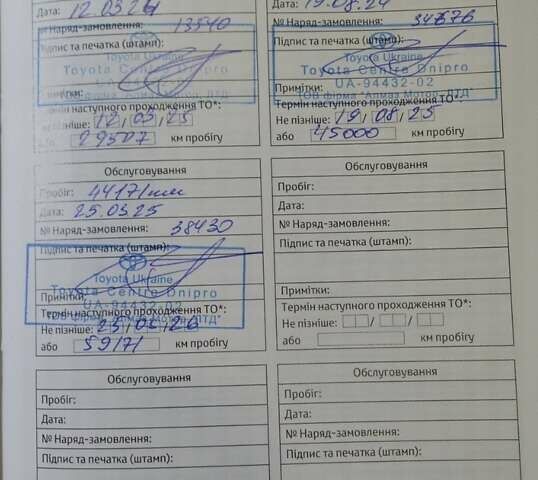 Дата: 12.03.24
№ Наряд-замовлення: 13540
Підпис та печатка (штамп):
Toyota Ukraine
Toyota Centre Dnipro
Термін наступного проходження ТО*:
Не пізніше: 12/03/25
або 29507 км пробігу
Дата: 19.08.24
№ Наряд-замовлення: 34676
Підпис та печатка (штамп):
Toyota Ukraine
Toyota Centre Dnipro
UA-94432-02
Примітки:
ТОВ фірма "Алмаз Мотор ЛТД"
Термін наступного проходження ТО*:
Не пізніше: 19/08/25
або 45000 км пробігу
Обслуговування
Пробіг: 44171км
Дата: 25.03.25
№ Наряд-замовлення: 38430
Підпис та печатка (штамп):
Toyota Ukraine
Toyota Centre Dnipro
Примітки:
UA-94432-02
Термін наступного проходження ТО*:
Не пізніше: 25/03/26
або 59171 км пробігу
Обслуговування
Пробіг:
Дата:
№ Наряд-замовлення:
Підпис та печатка (штамп):
Примітки:
Термін наступного проходження ТО*:
Не пізніше: / /
або км пробігу
Обслуговування
Пробіг:
Дата:
№ Наряд-замовлення:
Підпис та печатка (штамп):
Обслуговування
Пробіг:
Дата:
№ Наряд-замовлення:
Підпис та печатка (штамп):